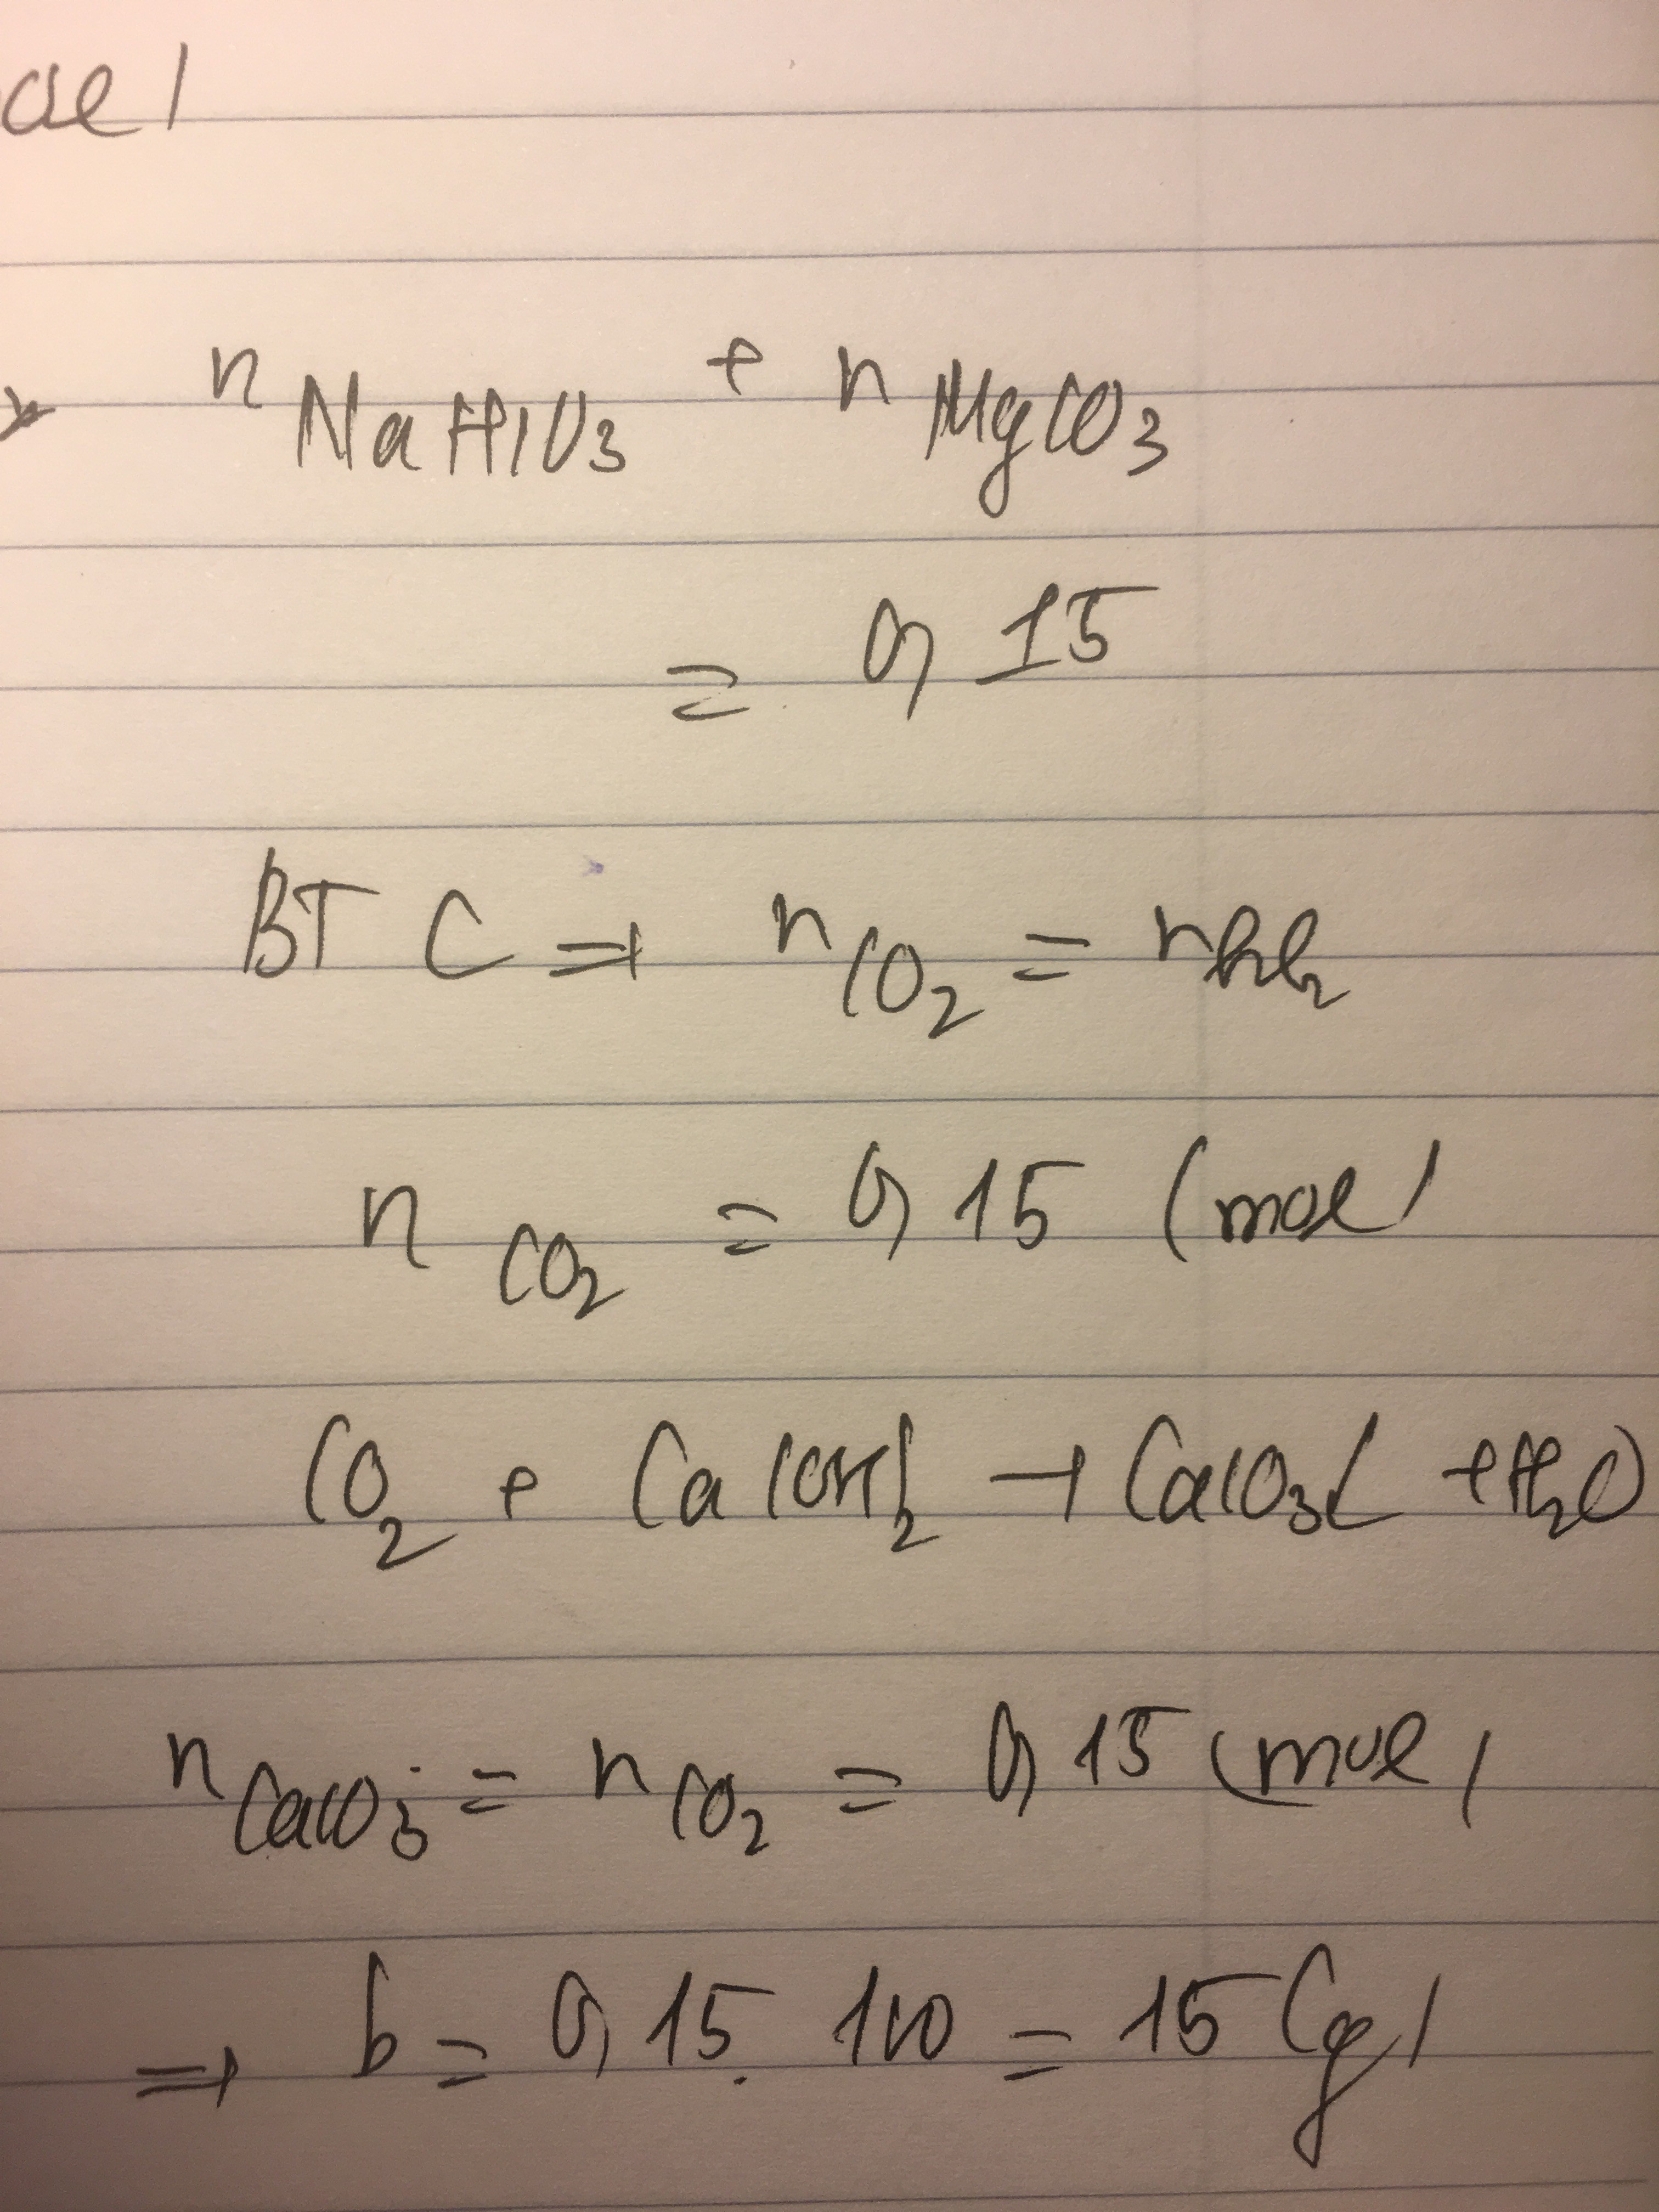 n NaHCO3 + n MgCO3
= 0,15
BT C ⇒ n CO2 = n hh
n CO2 = 0,15 (mol)
CO2 + Ca(OH)2 → CaCO3↓ + H2O
n CaCO3 = n CO2 = 0,15 (mol)
⇒ b = 0,15 . 100 = 15 (g)